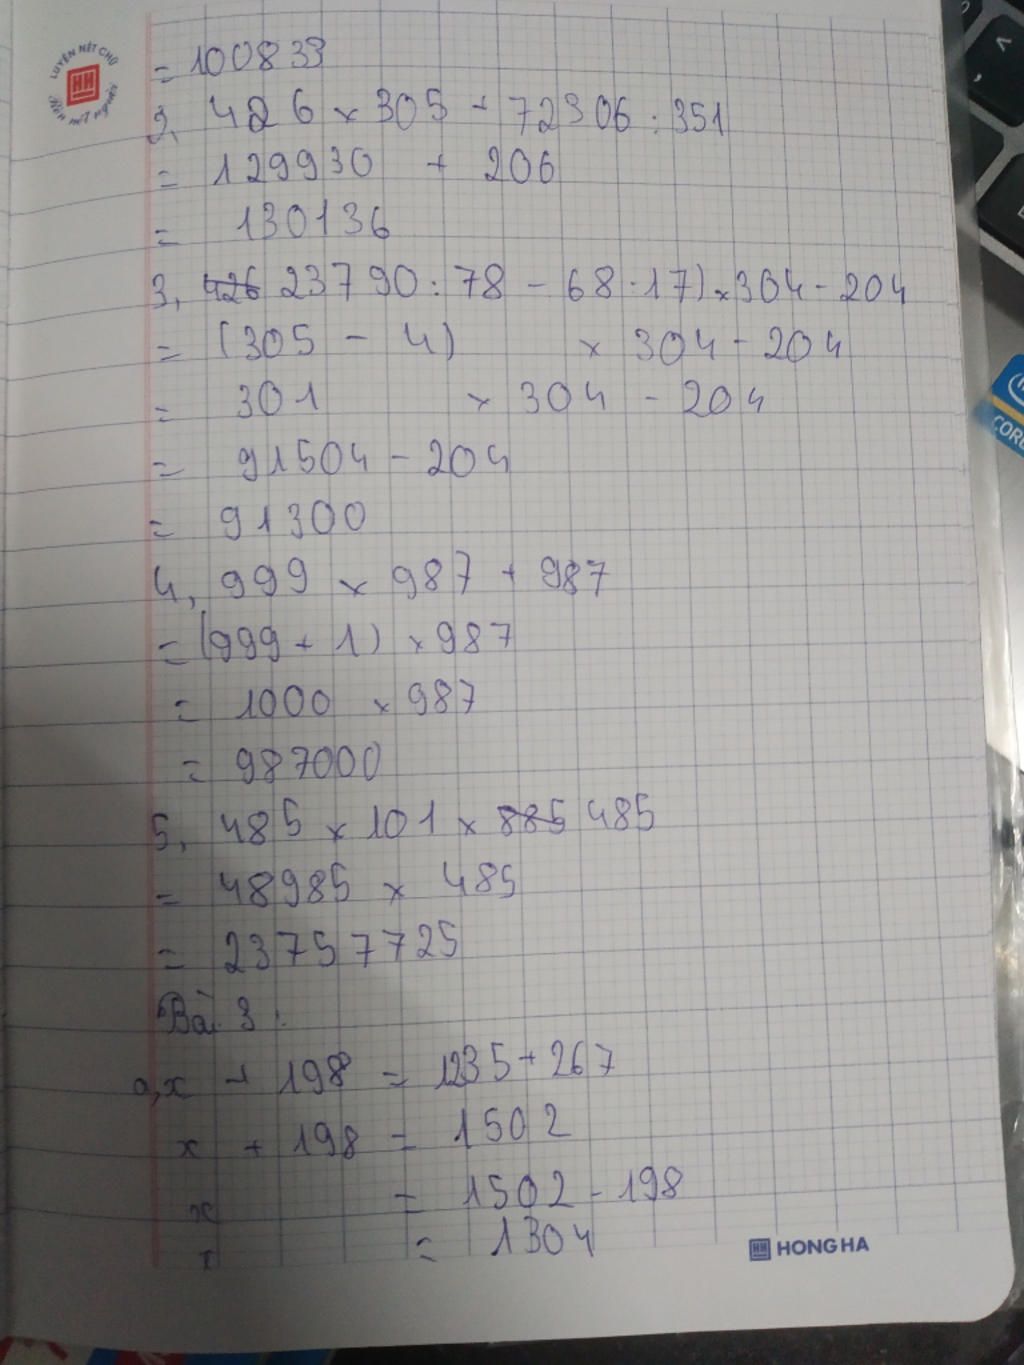 LUYỆN NẾT CHỮ
Rèn nết người
= 100833
2, 426 x 305 + 72306 : 351
= 129930 + 206
= 130136
3, 426 23790 : 78 - 68 : 17) x 304 - 204
= (305 - 4) x 304 - 204
= 301 x 304 - 204
= 91504 - 204
= 91300
4, 999 x 987 + 987
= (999 + 1) x 987
= 1000 x 987
= 987000
5, 485 x 101 x 885 485
= 48985 x 485
= 23757725
Bài 3 :
a, x + 198 = 1235 + 267
x + 198 = 1502
x = 1502 - 198
x = 1304
HH HONG HA
CORE